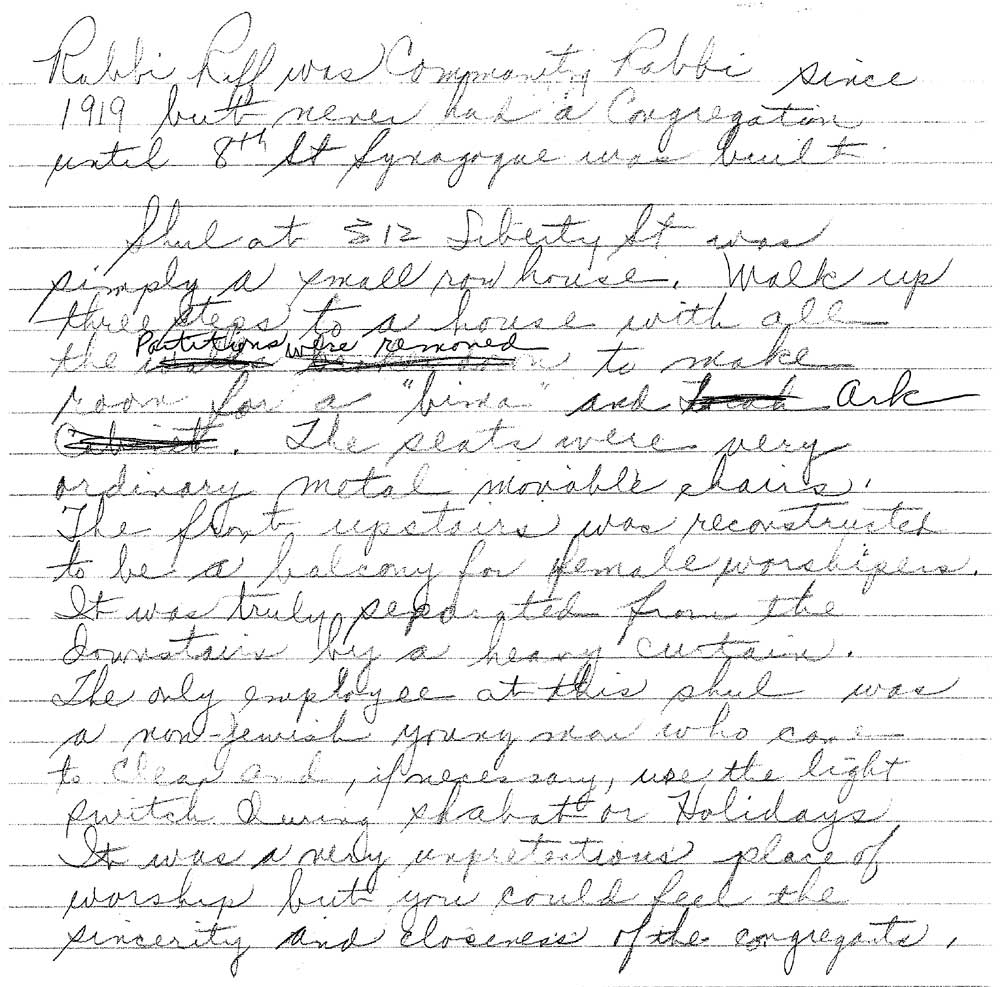 Rabbi Riff was Community Rabbi since
1919 but never had a Congregation
until 8th St Synagogue was built.
Shul at 312 Liberty St was
simply a small row house. Walk up
three steps to a house with all
the Partitions were removed to make
room for a "bima" and Ark
. The seats were very
ordinary metal movable chairs.
The front upstairs was reconstructed
to be a balcony for female worshipers.
It was truly separated from the
downstairs by a heavy curtain.
The only employee at this shul was
a non-Jewish young man who came
to clean and, if necessary, use the light
switch during shabat or Holidays
It was a very unpretentious place of
worship but you could feel the
sincerity and closeness of the congregants.